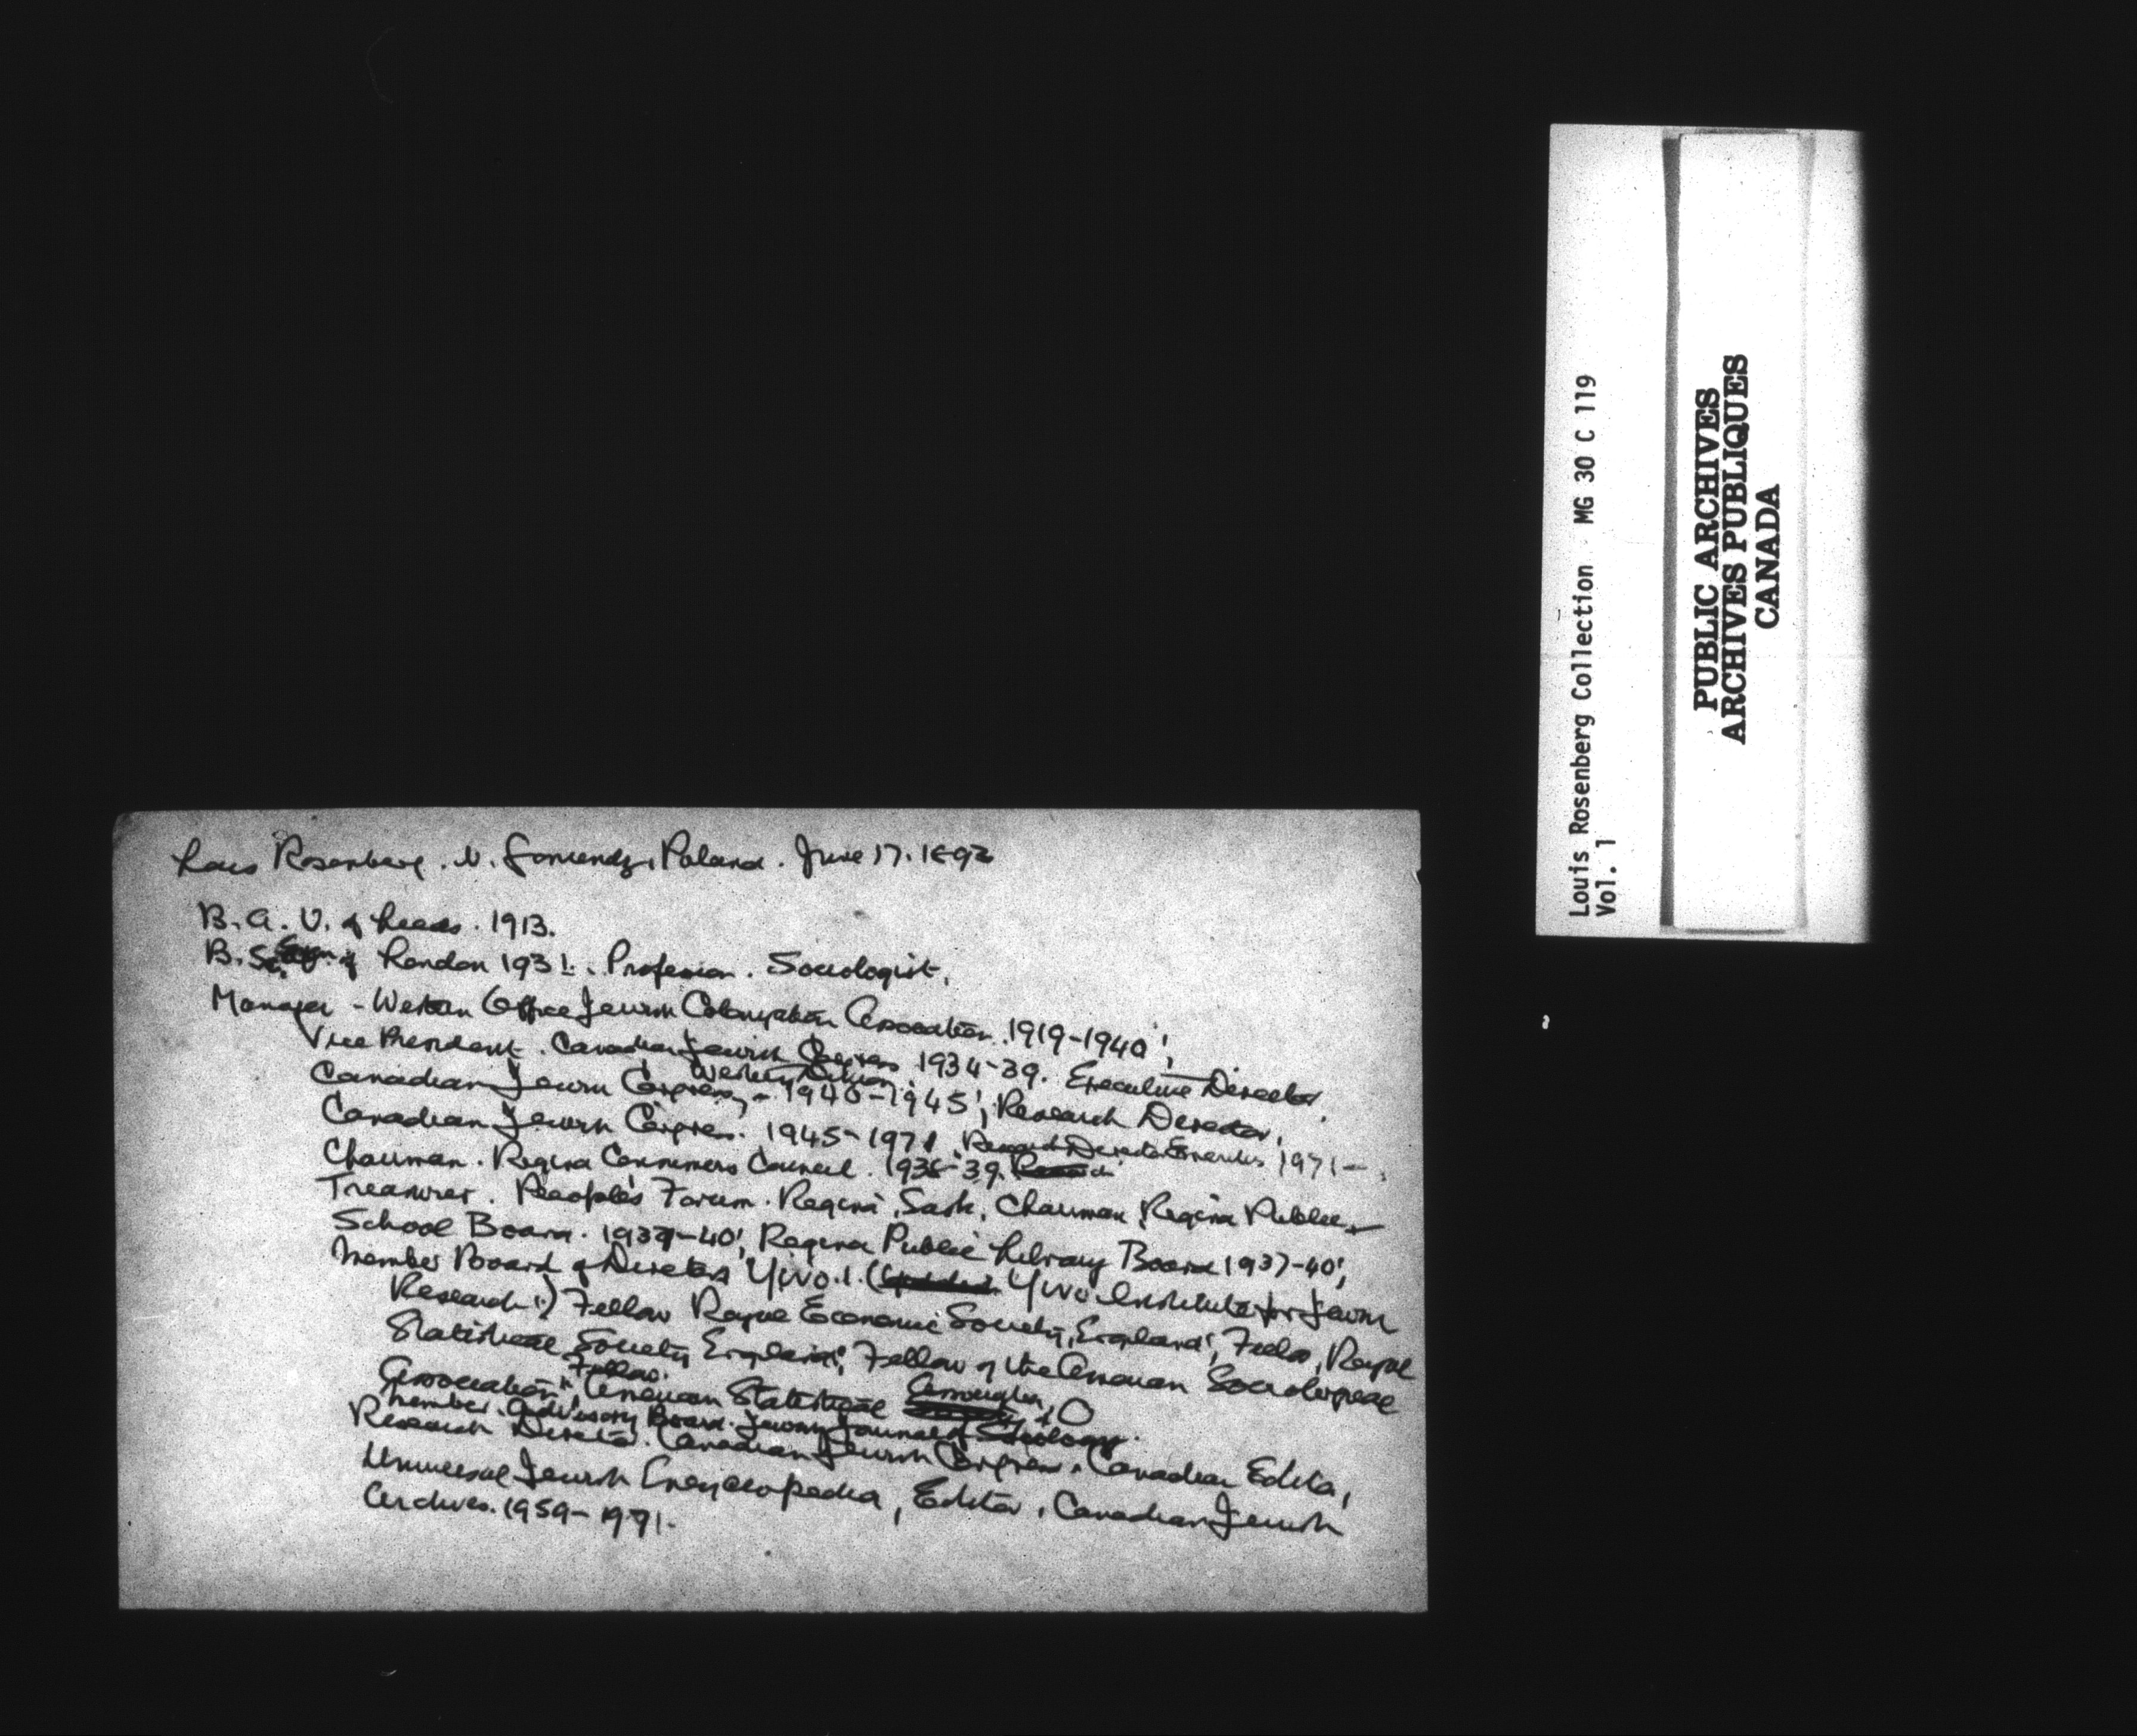 Louis Rosenberg. N. Poland. June 17. 1892
B.A. U. of Leeds. 1913.
B.Sc. London 1931. Profession. Sociologist.
Manager - Western Office Jewish Colonization Association. 1919-1940;
Vice President. Canadian Jewish Congress 1934-39. Executive Director,
Western Division
Canadian Jewish Congress, - 1940-1945; Research Director,
Canadian Jewish Congress. 1945-1971. Research Director Emeritus 1971-
Chairman. Regina Consumers Council. 1938-39.
Treasurer. People's Forum. Regina, Sask. Chairman, Regina Public
School Board. 1939-40; Regina Public Library Board 1937-40;
Member Board of Directors Yivo. (Yivo Institute for Jewish
Research;) Fellow Royal Economic Society, England; Fellow, Royal
Statistical Society England; Fellow of the American Sociological
Fellow.
Association; American Statistical Association,
Member. Advisory Board. Jewish Journal of Sociology.
Research Director. Canadian Jewish Congress. Canadian Editor,
Universal Jewish Encyclopedia, Editor, Canadian Jewish
Archives. 1959-1971.
Louis Rosenberg Collection MG 30 C 119
Vol. 1
PUBLIC ARCHIVES
ARCHIVES PUBLIQUES
CANADA